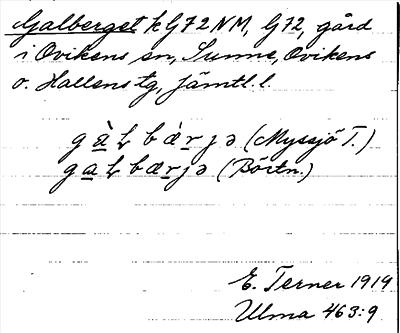 Galberget k G72NM, G72, gård
i Ovikens sn, Sunne, Ovikens
o. Hallens tg, Jämtl. l.
gàɫbæ̀rjə (Myssjö T.)
gaɫbærjə (Börtn.)
E. Terner 1919
Ulma 463:9